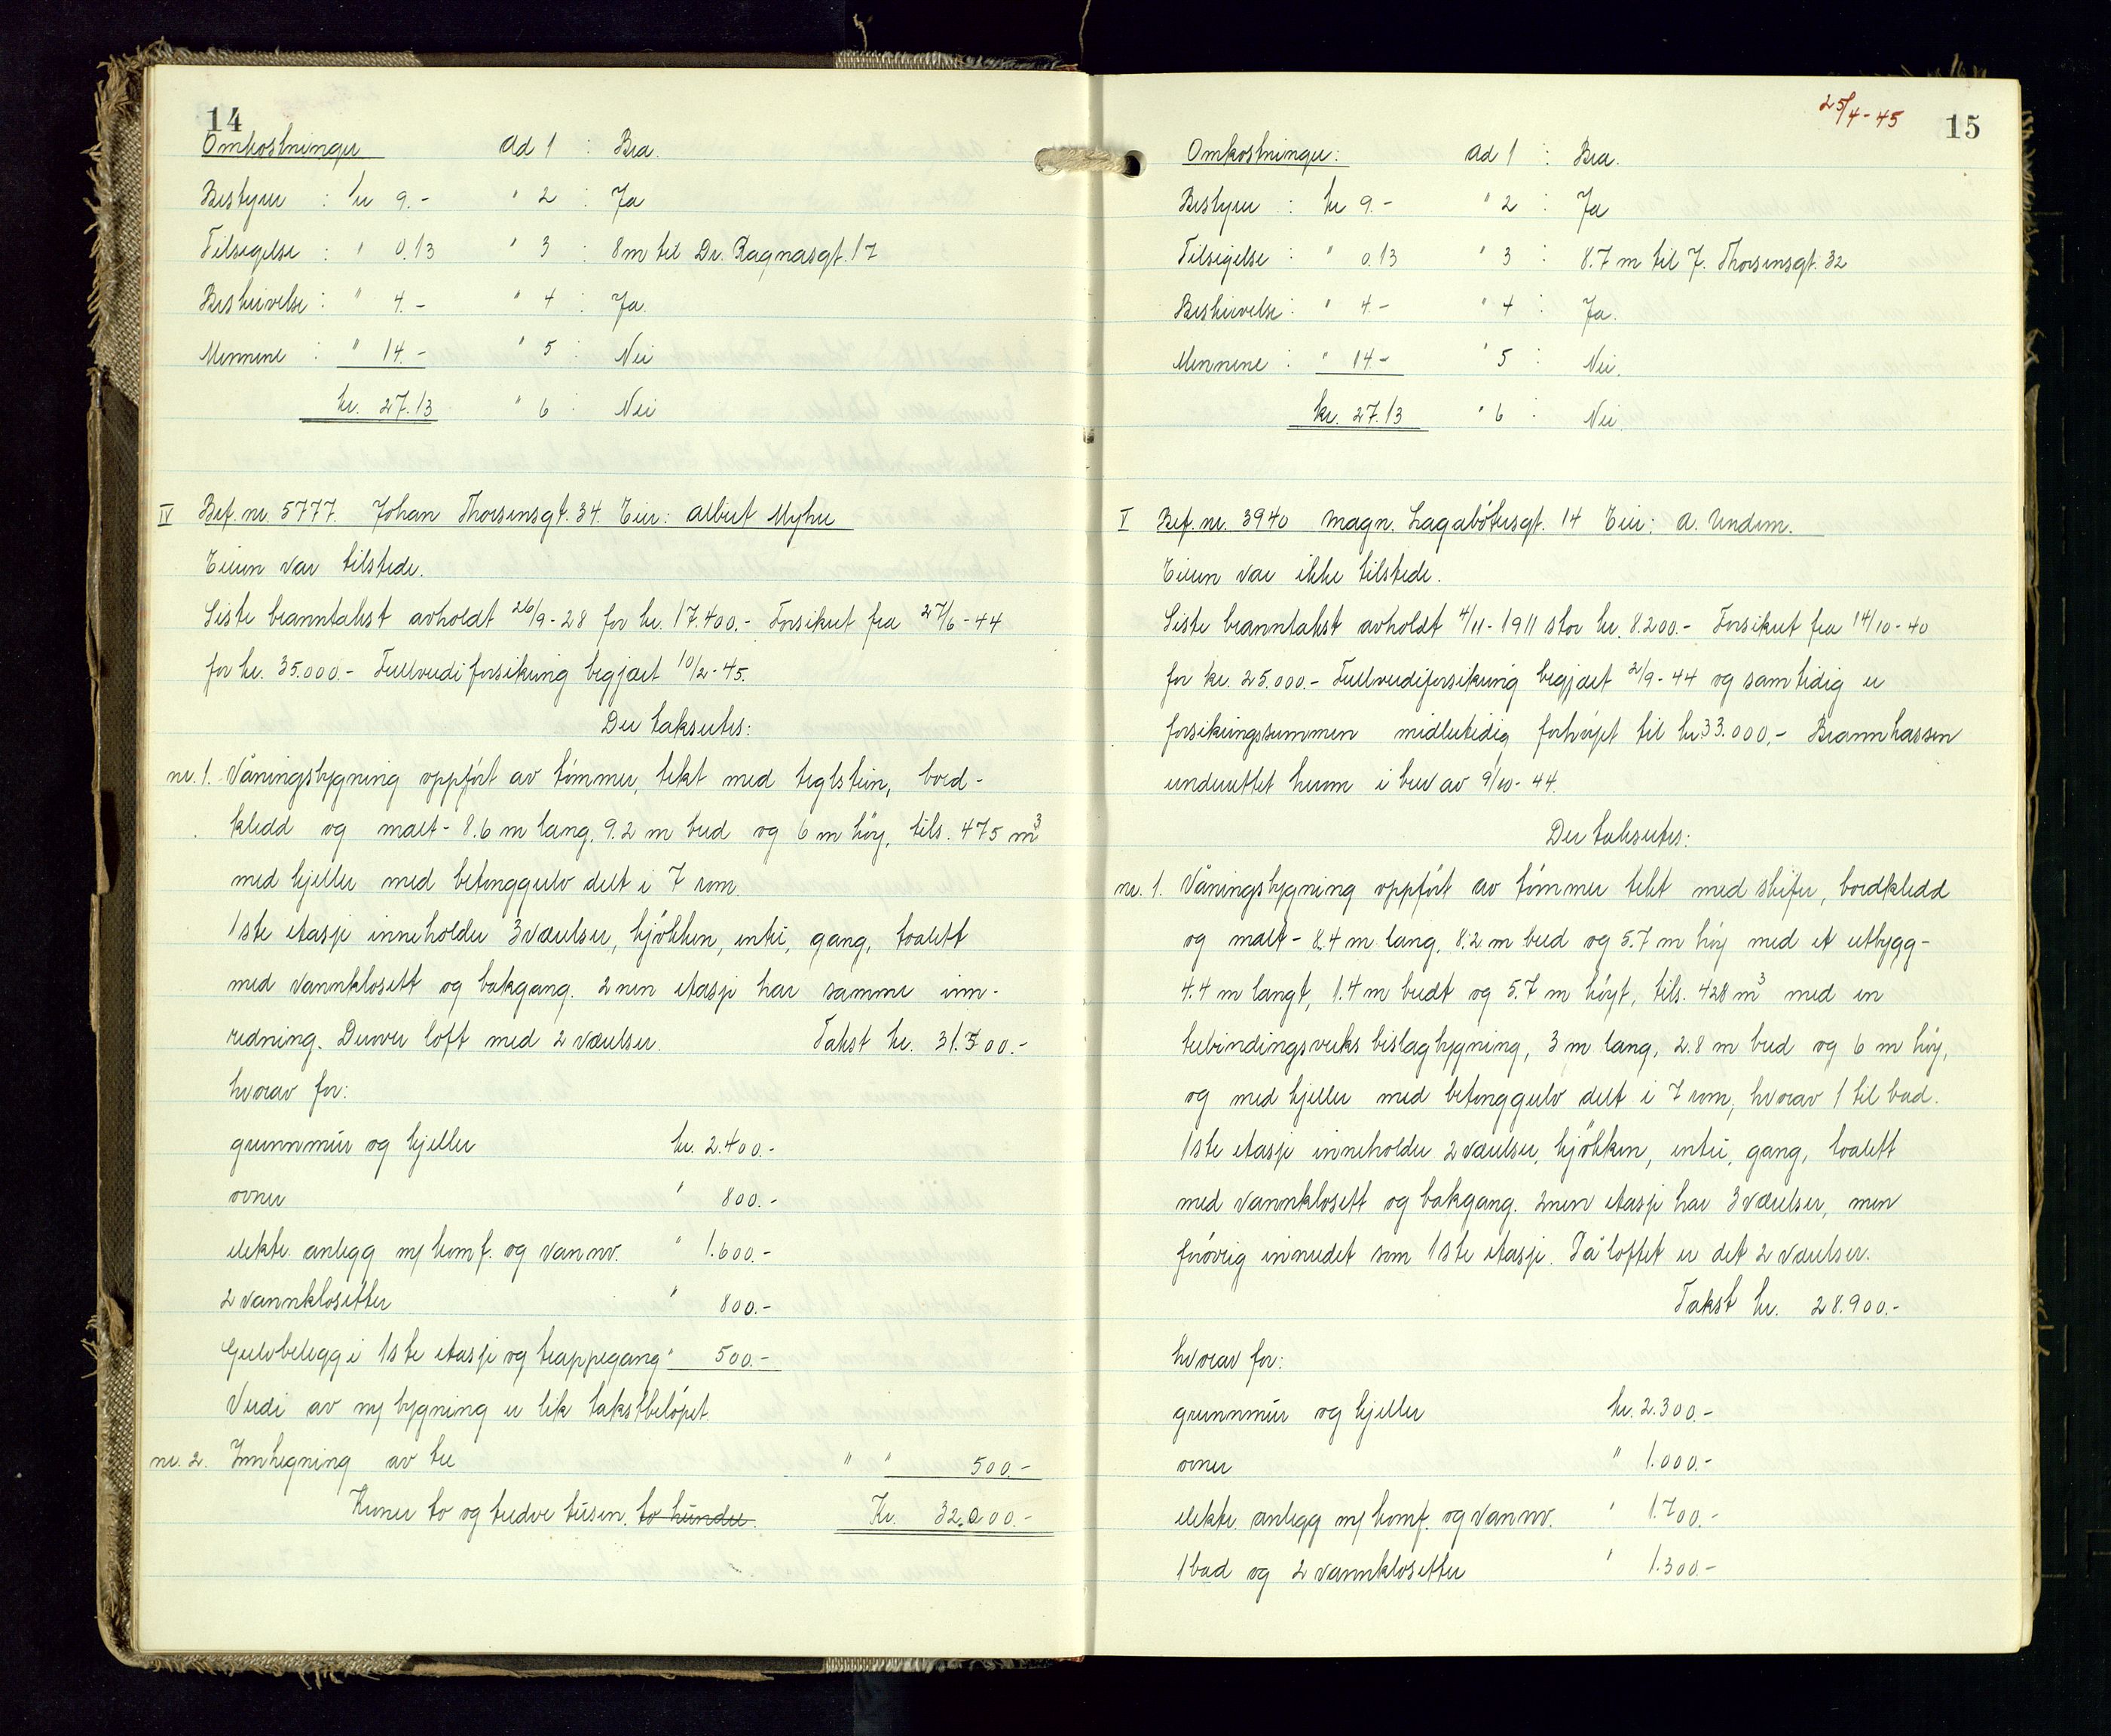 14
Omkostninger Ad 1 : Bra.
Bestyrer : kr 9.- " 2 : Ja
Tilsigelse : " 0.13 " 3 : 8 m til Dr. Ragnasgt. 17
Beskrivelse : " 4.- " 4 : Ja.
Mennene : " 14.- " 5 : Nei
kr. 27.13 " 6 : Nei
IV Bef. nr. 5777. Johan Thorsensgt. 34. Eier: Albert Myhre
Eieren var tilstede.
Siste branntakst avholdt 26/9-28 for kr. 17.400.- Forsikret fra 27/6-44
for kr. 35.000.- Fullverdiforsikring begjært 10/2-45.
Der takseres:
nr. 1. Våningsbygning oppført av tømmer, tekt med teglstein, bord-
kledd og malt - 8.6 m lang, 9.2 m bred og 6 m høy, tils. 475 m3
med kjeller med betonggulv delt i 7 rom.
1ste etasje inneholder 3 værelser, kjøkken, entré, gang, toalett
med vannklosett og bakgang. 2nen etasje har samme inn-
redning. Derover loft med 2 værelser. Takst kr. 31.500.-
hvorav for:
grunnmur og kjeller kr. 2.400.-
ovner " 800.-
elektr. anlegg m/ komf. og vannv. " 1.600.-
2 vannklosetter " 800.-
Gulvbelegg i 1ste etasje og trappegang " 500.-
Verdi av ny bygning er lik takstbeløpet.
nr. 2. Innhegning av tre " " 500.-
Kroner to og tredve tusen. to hundre. Kr. 32.000.-
25/4-45
15
Omkostninger: Ad 1 : Bra.
Bestyrer : kr 9.- " 2 : Ja
Tilsigelse : " 0.13 " 3 : 8.7 m til J. Thorsensgt. 32
Beskrivelse : " 4.- " 4 : Ja.
Mennene : " 14.- " 5 : Nei.
kr. 27.13 " 6 : Nei.
V Bef. nr. 3940 Magn. Lagabøtersgt. 14 Eier: A. Undem.
Eieren var ikke tilstede.
Siste branntakst avholdt 4/11-1911 stor kr. 8.200.- Forsikret fra 14/10-40
for kr. 25.000.- Fullverdiforsikring begjært 2/9-44 og samtidig er
forsikringssummen midlertidig forhøyet til kr 33.000.- Brannkassen
underrettet herom i brev av 9/10-44.
Der takseres:
nr. 1. Våningsbygning oppført av tømmer tekt med skifer, bordkledd
og malt - 8.4 m lang, 8.2 m bred og 5.7 m høy med et utbygg -
4.4 m langt, 1.4 m bredt og 5.7 m høyt, tils. 428 m3 med en
trebindingsverks bislagbygning, 3 m lang, 2.8 m bred og 6 m høy,
og med kjeller med betonggulv delt i 7 rom, hvorav 1 til bad.
1ste etasje inneholder 2 værelser, kjøkken, entré, gang, toalett
med vannklosett og bakgang. 2nen etasje har 3 værelser, men
forøvrig innredet som 1ste etasje. På loftet er det 2 værelser.
Takst kr. 28.900.-
hvorav for:
grunnmur og kjeller kr. 2.300.-
ovner " 1.000.-
elektr. anlegg m/ komf. og vannv. " 1.700.-
1 bad og 2 vannklosetter " 1.300.-